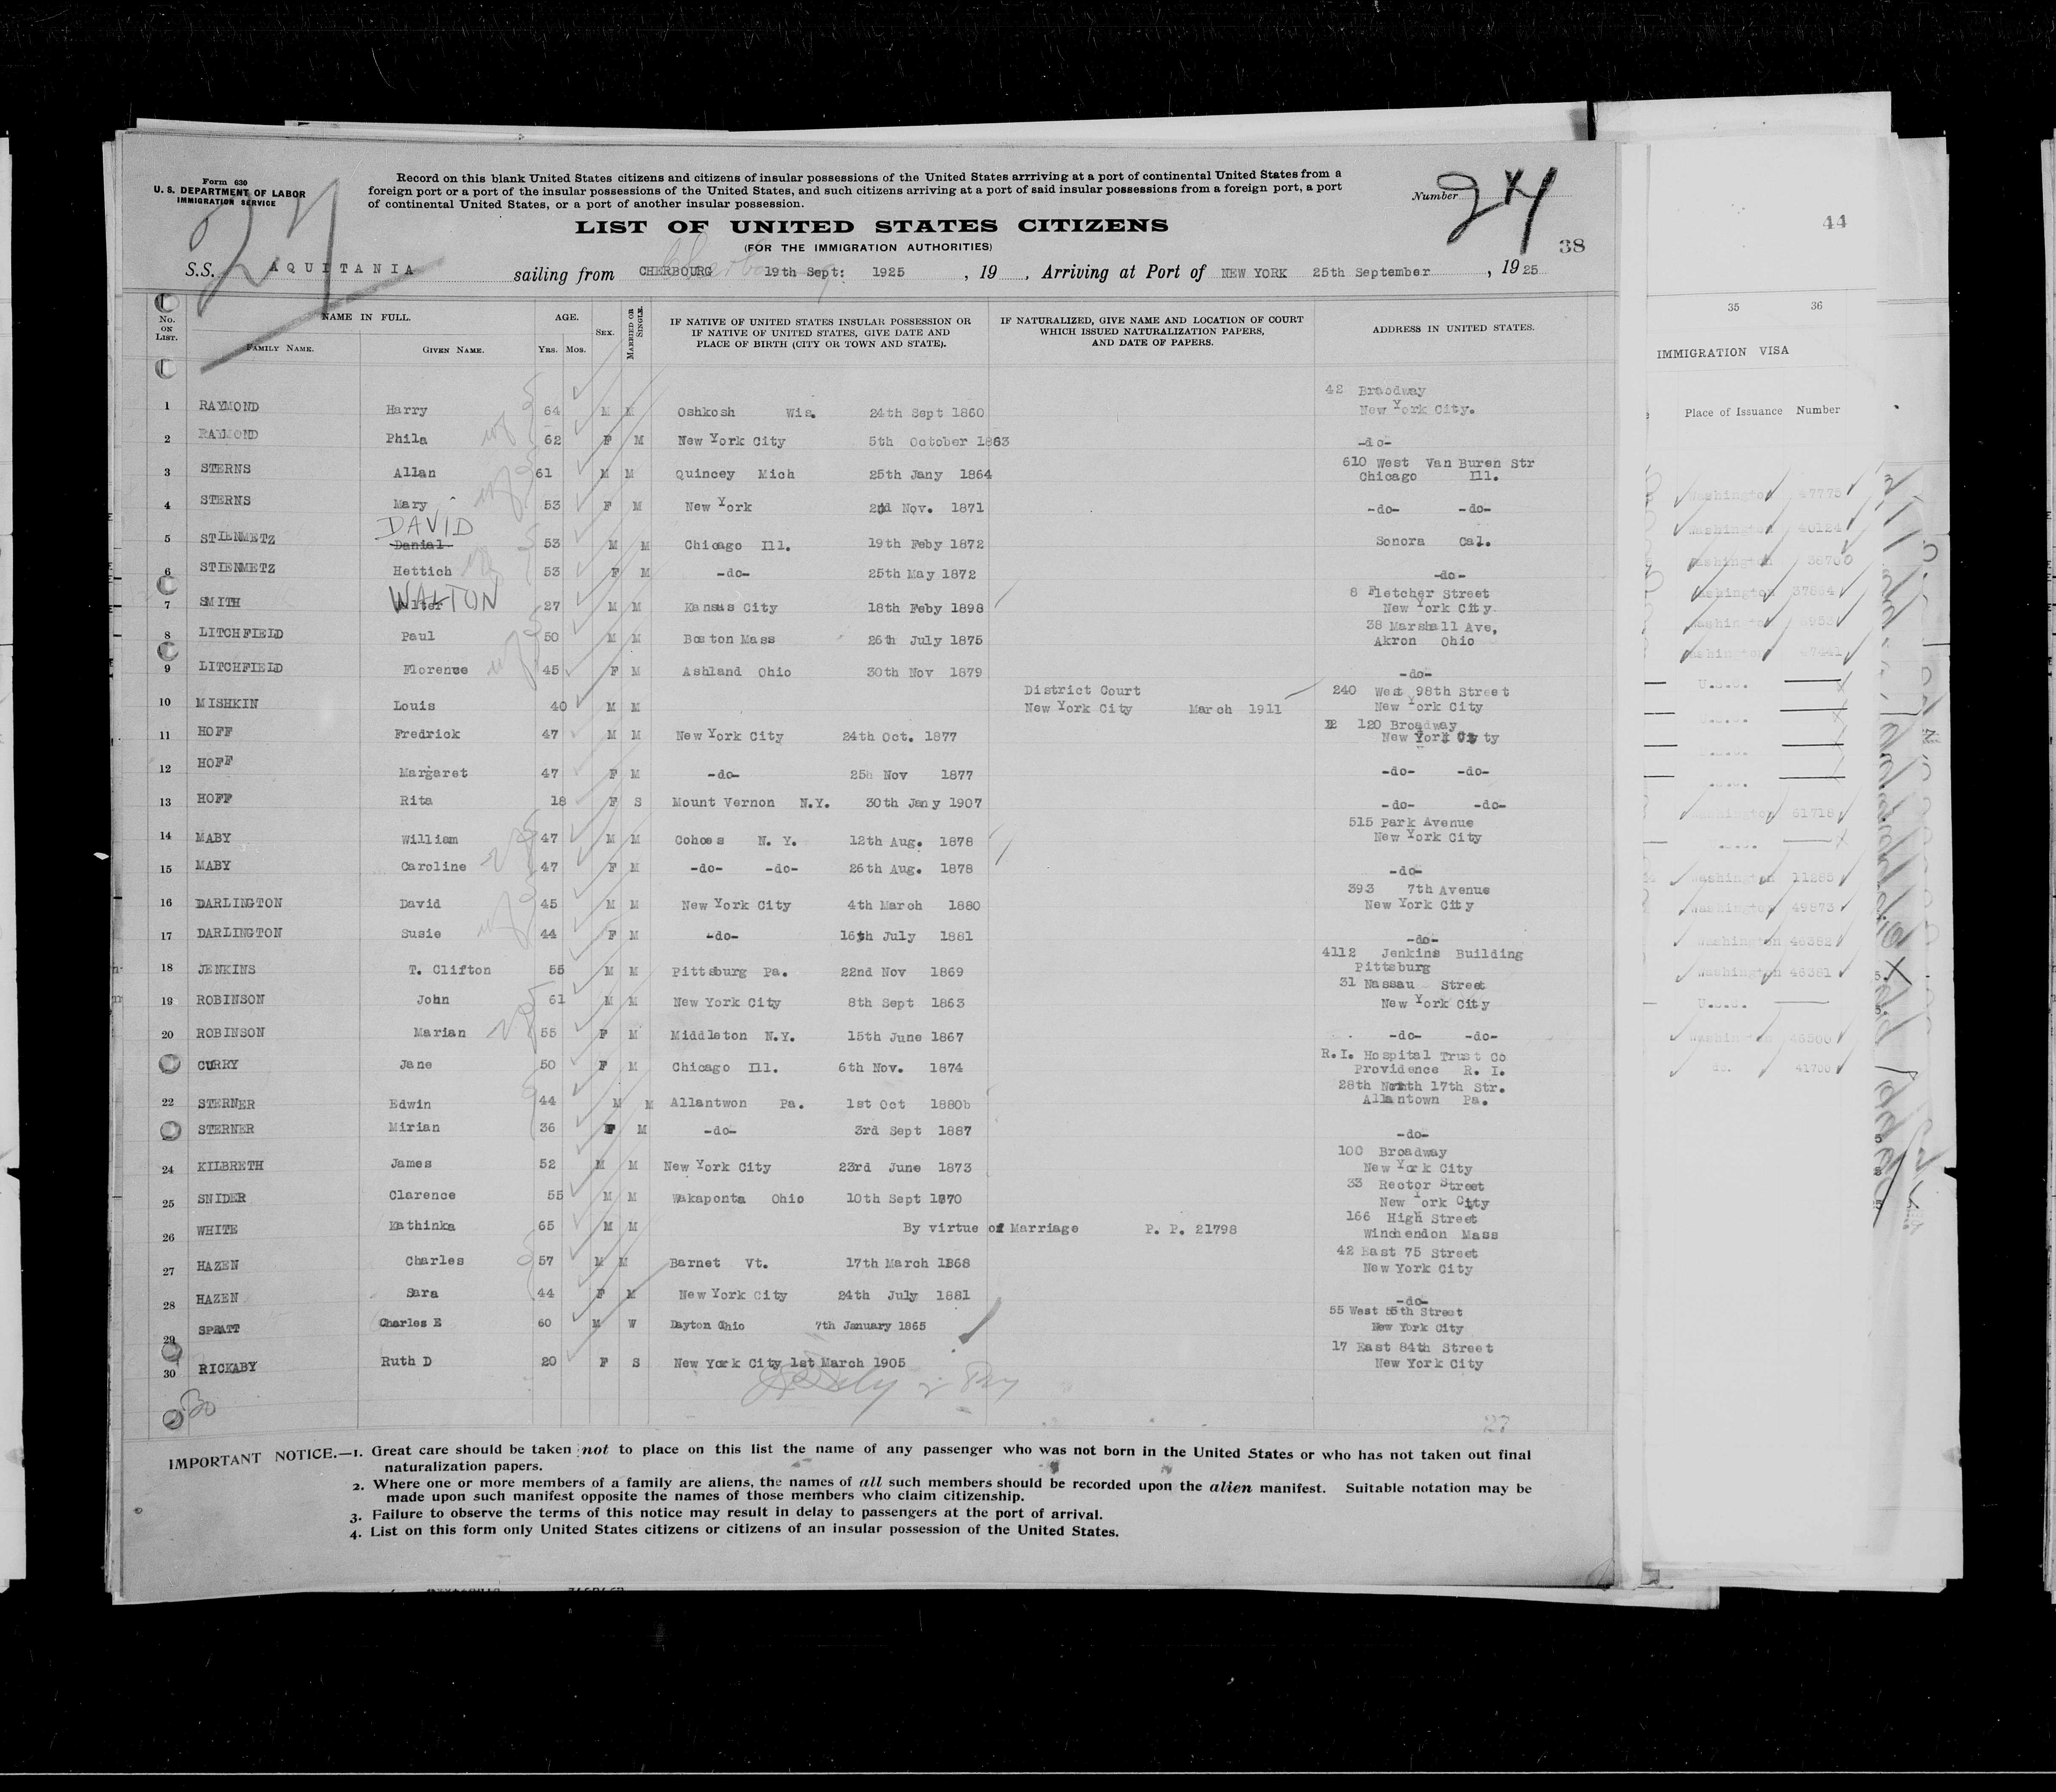 Form 630
U. S. DEPARTMENT OF LABOR
IMMIGRATION SERVICE
27
Record on this blank United States citizens and citizens of insular possessions of the United States arrriving at a port of continental United States from a
foreign port or a port of the insular possessions of the United States, and such citizens arriving at a port of said insular possessions from a foreign port, a port
of continental United States, or a port of another insular possession.
Number 24
38
LIST OF UNITED STATES CITIZENS
(FOR THE IMMIGRATION AUTHORITIES)
S.S. AQUITANIA sailing from CHERBOURG 19th Sept: 1925 , 19 , Arriving at Port of NEW YORK 25th September , 1925
No. ON LIST. NAME IN FULL. FAMILY NAME. GIVEN NAME. AGE. YRS. MOS. SEX. MARRIED OR SINGLE. IF NATIVE OF UNITED STATES INSULAR POSSESSION OR IF NATIVE OF UNITED STATES, GIVE DATE AND PLACE OF BIRTH (CITY OR TOWN AND STATE). IF NATURALIZED, GIVE NAME AND LOCATION OF COURT WHICH ISSUED NATURALIZATION PAPERS, AND DATE OF PAPERS. ADDRESS IN UNITED STATES.
42 Braodway
1 RAYMOND Harry 64 M M Oshkosh Wis. 24th Sept 1860 New York City.
2 RAYMOND Phila 62 F M New York City 5th October 1863 -do-
610 West Van Buren Str
3 STERNS Allan 61 M M Quincey Mich 25th Jany 1864 Chicago Ill.
4 STERNS Mary 53 F M New York 2nd Nov. 1871 -do- -do-
DAVID
5 STIENMETZ Danial 53 M M Chicago Ill. 19th Feby 1872 Sonora Cal.
6 STIENMETZ Hettich 53 F M -do- 25th May 1872 -do-
8 Fletcher Street
7 SMITH WALTON 27 M M Kansas City 18th Feby 1898 New York City
38 Marshall Ave,
8 LITCHFIELD Paul 50 M M Boston Mass 26th July 1875 Akron Ohio
9 LITCHFIELD Florence 45 F M Ashland Ohio 30th Nov 1879 -do-
District Court 240 West 98th Street
10 MISHKIN Louis 40 M M New York City March 1911 New York City
120 Broadway
11 HOFF Fredrick 47 M M New York City 24th Oct. 1877 New York City
12 HOFF Margaret 47 F M -do- 25h Nov 1877 -do- -do-
13 HOFF Rita 18 F S Mount Vernon N.Y. 30th Jany 1907 -do- -do-
515 Park Avenue
14 MABY William 47 M M Cohoes N. Y. 12th Aug. 1878 New York City
15 MABY Caroline 47 F M -do- -do- 26th Aug. 1878 -do-
393 7th Avenue
16 DARLINGTON David 45 M M New York City 4th March 1880 New York City
17 DARLINGTON Susie 44 F M -do- 16th July 1881 -do-
4112 Jenkins Building
18 JENKINS T. Clifton 55 M M Pittsburg Pa. 22nd Nov 1869 Pittsburg
31 Nassau Street
19 ROBINSON John 61 M M New York City 8th Sept 1863 New York City
20 ROBINSON Marian 55 F M Middleton N.Y. 15th June 1867 -do- -do-
R.I. Hospital Trust Co
CURRY Jane 50 F M Chicago Ill. 6th Nov. 1874 Providence R. I.
28th North 17th Str.
22 STERNER Edwin 44 M M Allantwon Pa. 1st Oct 1880b Allantown Pa.
STERNER Mirian 36 F M -do- 3rd Sept 1887 -do-
100 Broadway
24 KILBRETH James 52 M M New York City 23rd June 1873 New York City
33 Rector Street
25 SNIDER Clarence 55 M M Wakaponta Ohio 10th Sept 1870 New York City
166 High Street
26 WHITE Kathinka 65 M M By virtue of Marriage P. P. 21798 Winchendon Mass
42 East 75 Street
27 HAZEN Charles 57 M M Barnet Vt. 17th March 1868 New York City
28 HAZEN Sara 44 F M New York City 24th July 1881 -do-
55 West 55th Street
29 SPRATT Charles E 60 M W Dayton Ohio 7th January 1865 New York City
17 East 84th Street
30 RICKABY Ruth D 20 F S New York City 1st March 1905 New York City
30
27
IMPORTANT NOTICE.—1. Great care should be taken not to place on this list the name of any passenger who was not born in the United States or who has not taken out final
naturalization papers.
2. Where one or more members of a family are aliens, the names of all such members should be recorded upon the alien manifest. Suitable notation may be
made upon such manifest opposite the names of those members who claim citizenship.
3. Failure to observe the terms of this notice may result in delay to passengers at the port of arrival.
4. List on this form only United States citizens or citizens of an insular possession of the United States.
44
35 36
IMMIGRATION VISA
Place of Issuance Number
Washington 47775
Washington
Washington
Washington
Washington
Washington
U.S.S.
Washington 61718
Washington 11285
Washington 49873
Washington 46382
Washington 46381
Washington 46500
do. 41700